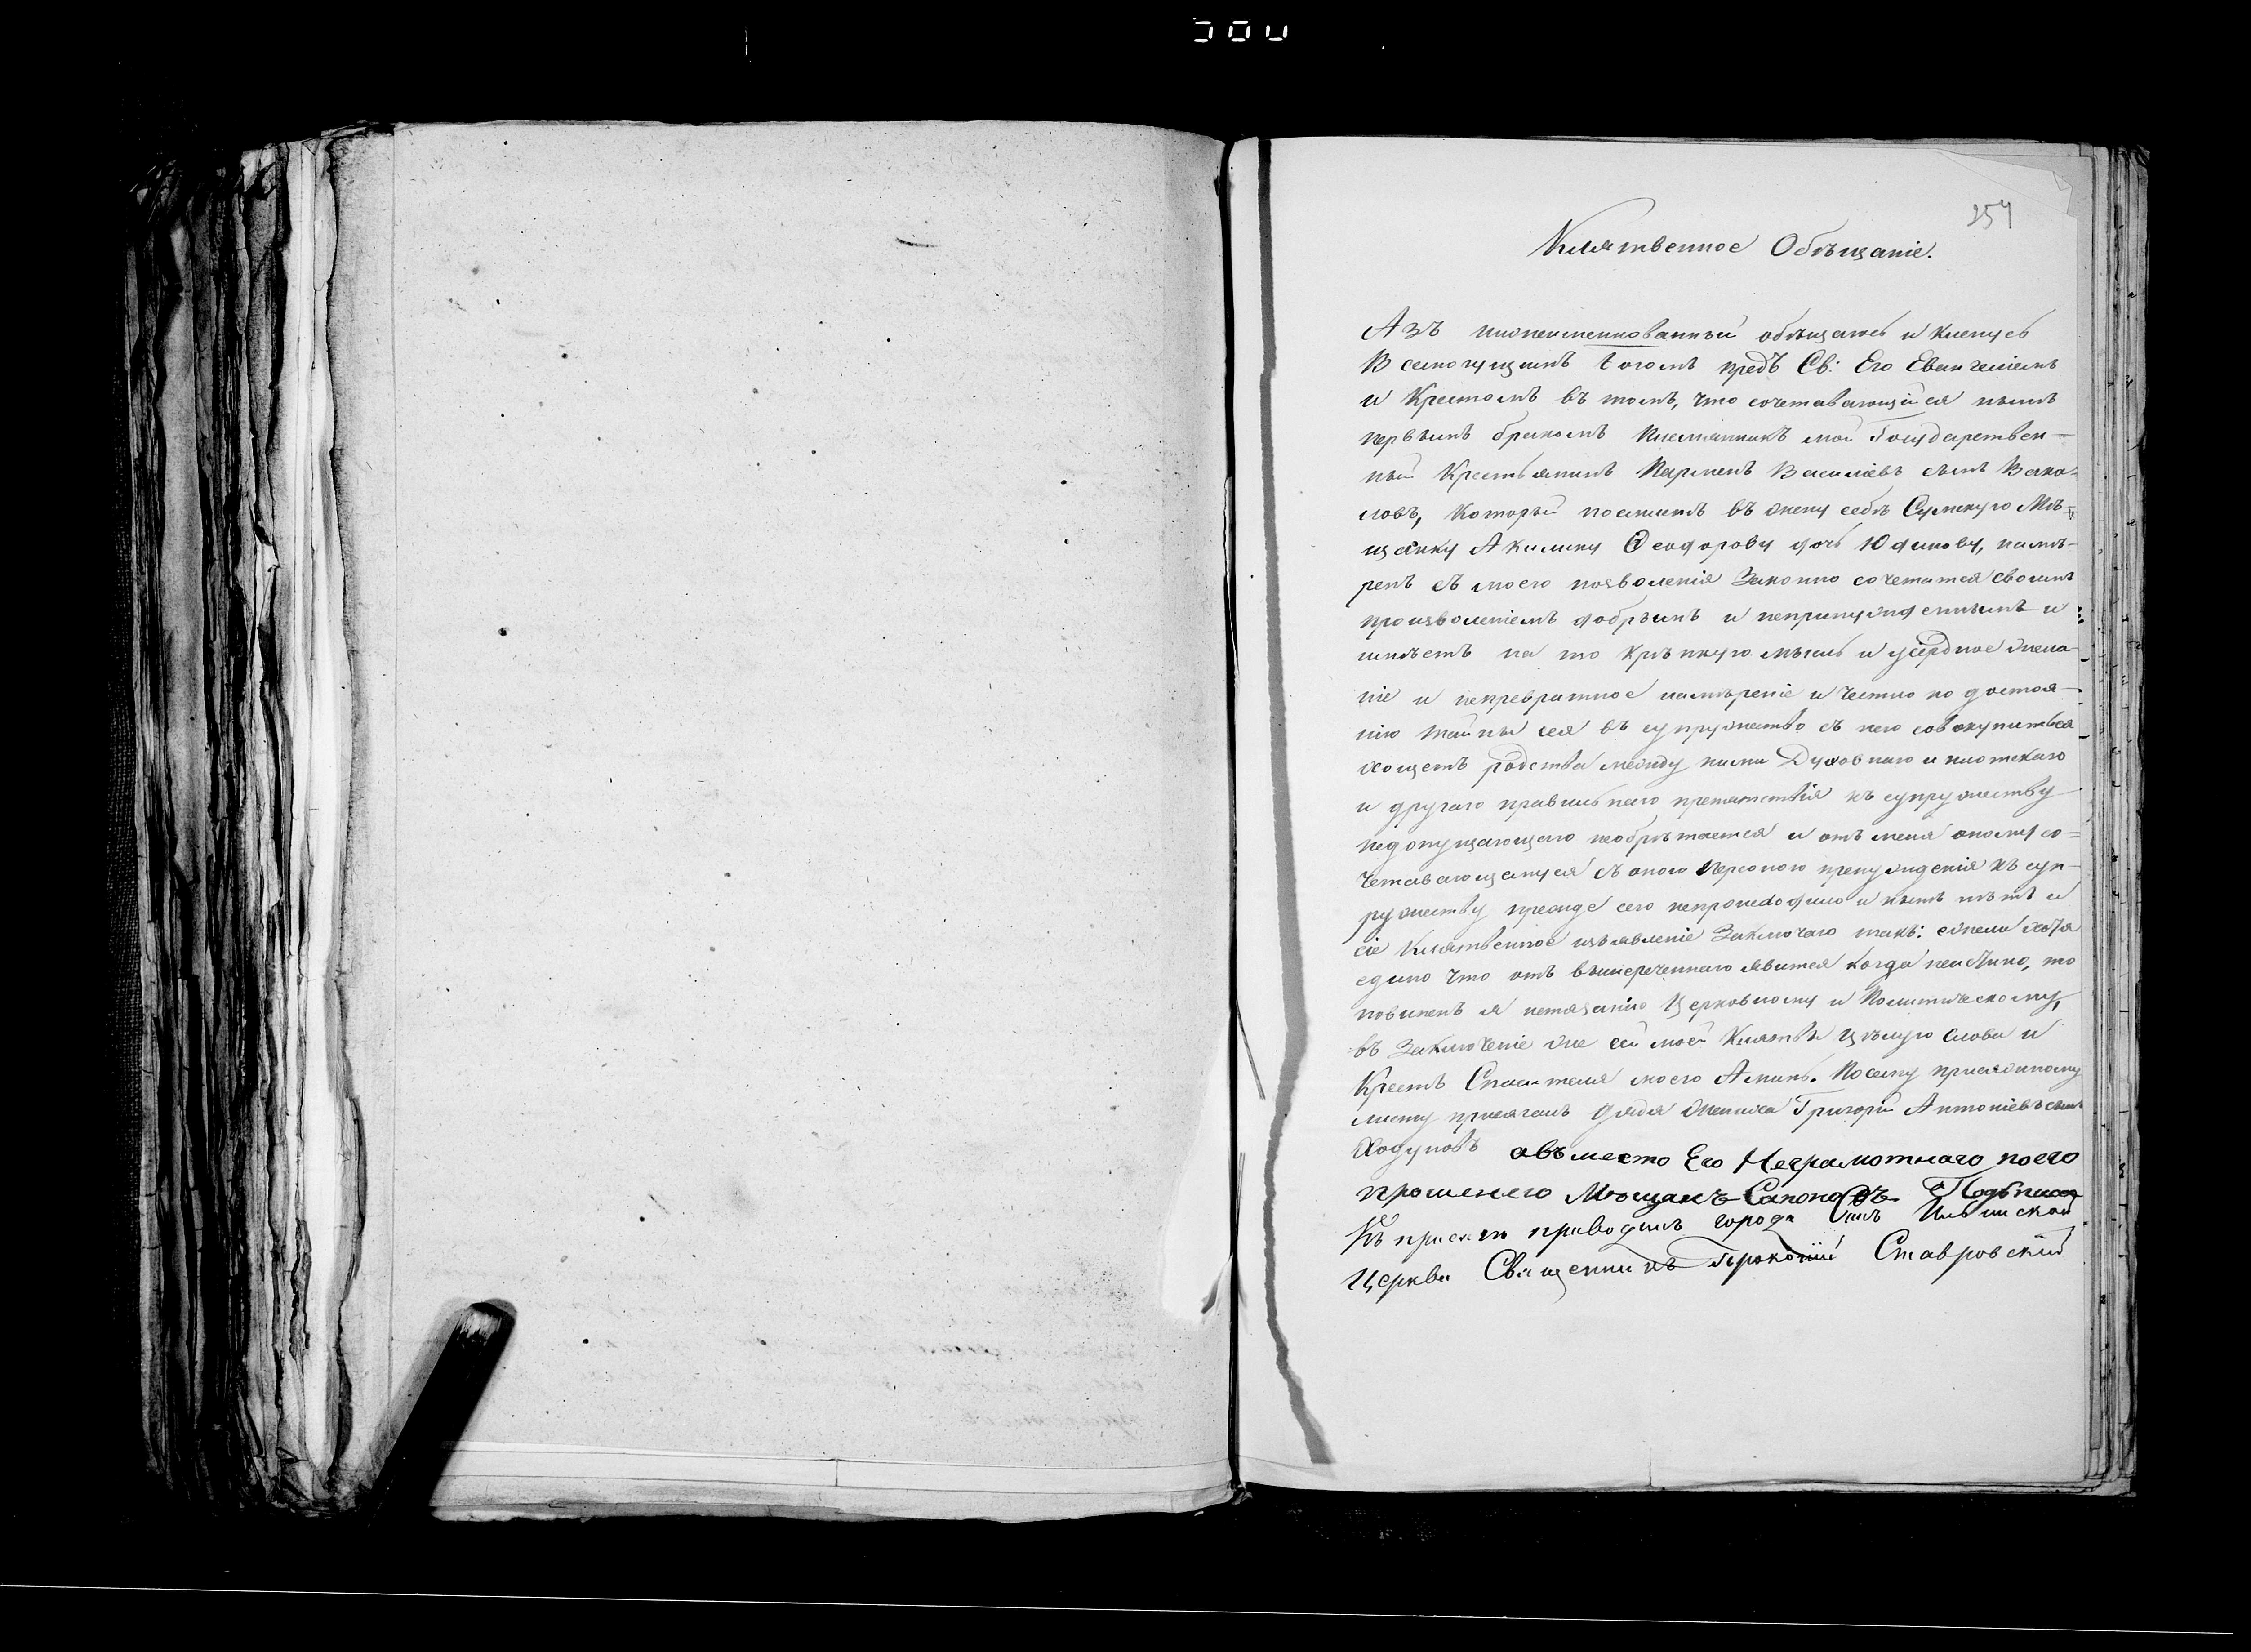 254
Клятвенное Обѣщаніе.
Азъ нижеименнованный обѣщаюсь и кленусь
Всемогущимъ Богомъ предъ Св: Его Евангеліемъ
и Крестомъ въ томъ, что сочетавающійся нынѣ
первымъ бракомъ племянникъ мой Государствен-
ный Крестьянинъ Парменъ Василіевъ сынъ
ловъ, который поемлетъ въ жену себѣ Сумскую Мѣ-
щанку Акилину Ѳеодорову дочь Юдинову, намѣ-
ренъ съ моего позволенія Законно сочетатся своимъ
произволеніемъ добрымъ и непринужденнымъ и
имѣетъ на то крѣпкую мысль и усердное жела-
ніе и непревратное намѣреніе и честно по достоя-
нію тайны сея въ супружество съ нею совокупиться
хощетъ родства между ними Духовнаго и плотскаго
и другаго правильнаго препятствія къ супружеству
недопущающаго необрѣтается и отъ меня оному со=
четавающемуся съ оною персоною принужденія къ суп-
ружеству прежде сего непроисходило и нынѣ нѣтъ и
сіе Клятвенное изъявленіе Заключаю такъ: ежели хотя
едино что отъ вышереченнаго явится когда неистино, то
повиненъ я истязанію Церковному и Политическому,
въ Заключеніе же сей моей Клятвы цѣлую слова и
Крестъ Спасителя моего Аминь. По сему присяжному
листу присягалъ дядя жениха Григорій Антоніевъ сынъ
Ходуновъ авъместо Его Неграмотнаго поего
прошенею Мѣщанъ Подьписа
Къ присягѣ приводилъ города Сумъ Ильинской
Церкви Священникъ Прокопій Ставровскій